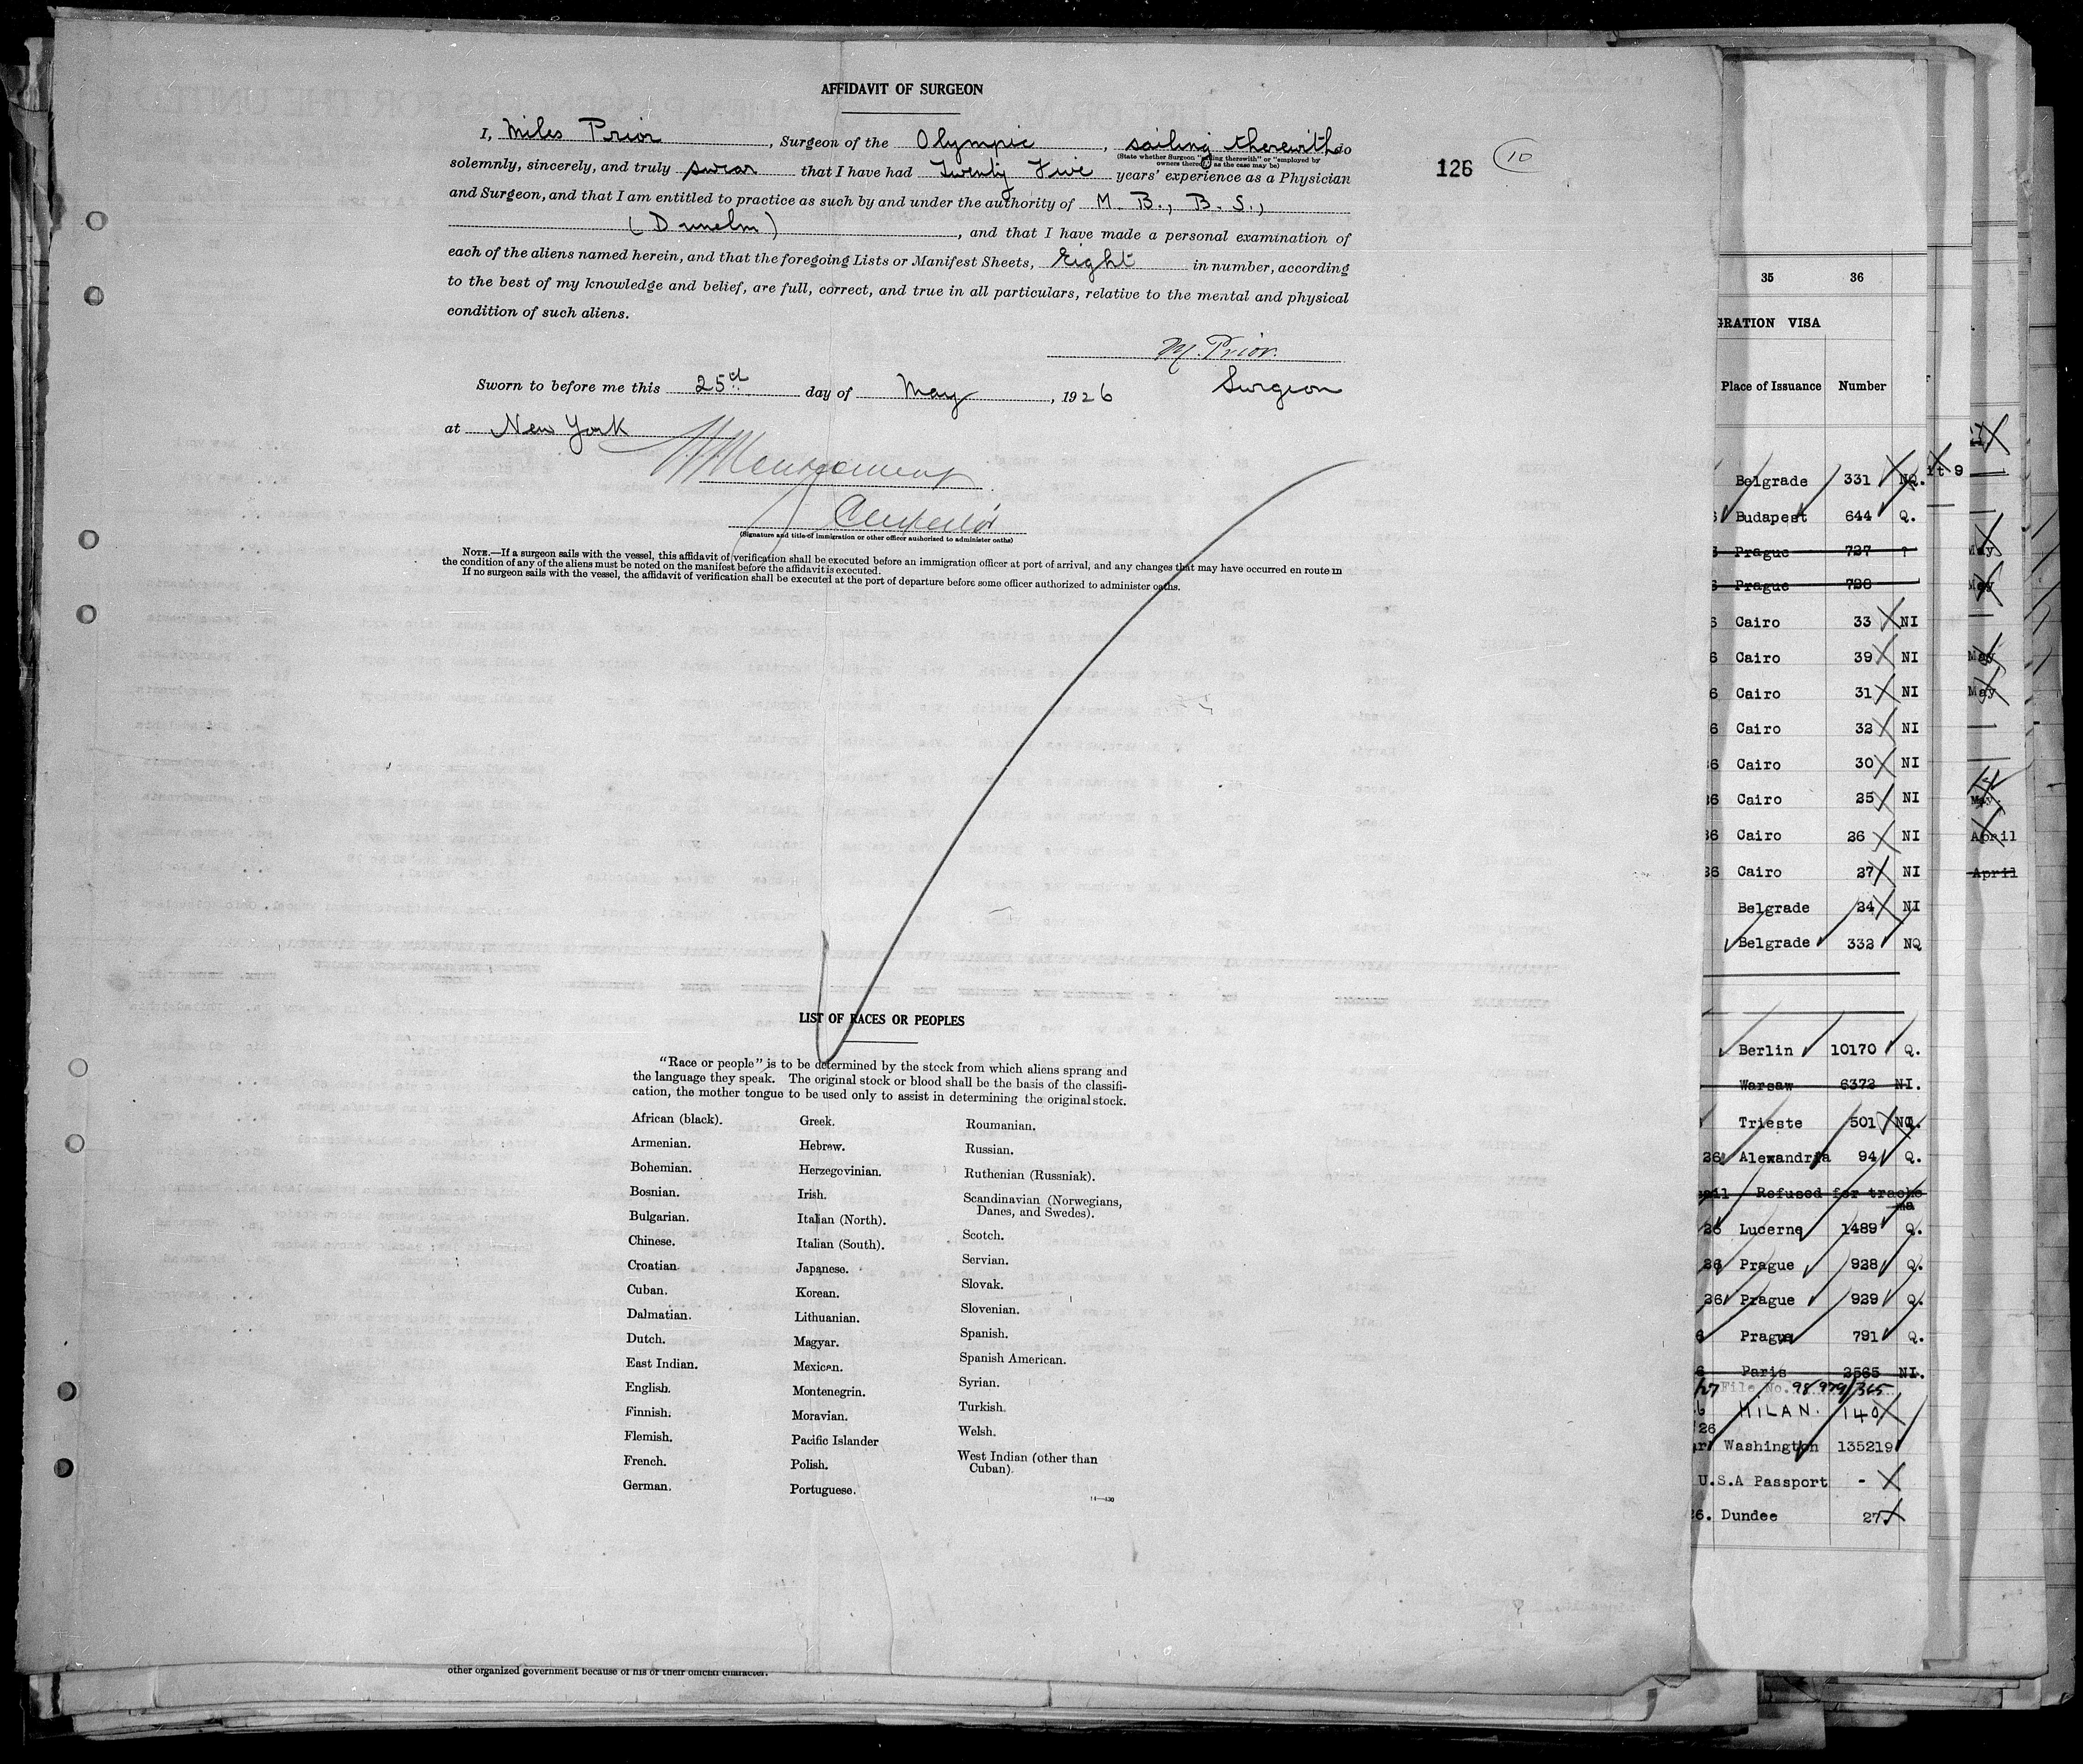 AFFIDAVIT OF SURGEON
I, Miles Prior, Surgeon of the Olympic, sailing therewith do
(State whether Surgeon "sailing therewith" or "employed by
owners thereof," as the case may be)
solemnly, sincerely, and truly swear that I have had Twenty Five years' experience as a Physician
and Surgeon, and that I am entitled to practice as such by and under the authority of M. B., B. S.,
(Dunelm), and that I have made a personal examination of
each of the aliens named herein, and that the foregoing Lists or Manifest Sheets, Eight in number, according
to the best of my knowledge and belief, are full, correct, and true in all particulars, relative to the mental and physical
condition of such aliens.
126 10
M. Prior.
Surgeon
Sworn to before me this 25th day of May, 1926
at New York
(Signature and title of immigration or other officer authorized to administer oaths)
NOTE.—If a surgeon sails with the vessel, this affidavit of verification shall be executed before an immigration officer at port of arrival, and any changes that may have occurred en route in
the condition of any of the aliens must be noted on the manifest before the affidavit is executed.
If no surgeon sails with the vessel, the affidavit of verification shall be executed at the port of departure before some officer authorized to administer oaths.
LIST OF RACES OR PEOPLES
"Race or people" is to be determined by the stock from which aliens sprang and
the language they speak. The original stock or blood shall be the basis of the classifi-
cation, the mother tongue to be used only to assist in determining the original stock.
African (black).
Armenian.
Bohemian.
Bosnian.
Bulgarian.
Chinese.
Croatian
Cuban.
Dalmatian.
Dutch.
East Indian.
English.
Finnish.
Flemish.
French.
German.
Greek.
Hebrew.
Herzegovinian.
Irish.
Italian (North).
Italian (South).
Japanese.
Korean.
Lithuanian.
Magyar.
Mexican.
Montenegrin.
Moravian.
Pacific Islander
Polish.
Portuguese.
Roumanian.
Russian.
Ruthenian (Russniak).
Scandinavian (Norwegians,
Danes, and Swedes).
Scotch.
Servian.
Slovak.
Slovenian.
Spanish.
Spanish American.
Syrian.
Turkish.
Welsh.
West Indian (other than
Cuban).
14—430
other organized government because of his or their official character.
35 36
GRATION VISA
Place of Issuance Number
Belgrade 331 NQ.
Budapest 644 Q.
Prague 727
Prague 728
Cairo 33 NI
Cairo 39 NI
Cairo 31 NI
Cairo 32 NI
Cairo 30 NI
Cairo 25 NI
Cairo 26 NI
Cairo 27 NI
Belgrade 24 NI
Belgrade 332 NQ
Berlin 10170 Q.
Warsaw 6372 NI.
Trieste 501 NQ.
26 Alexandria 94 Q.
Refused for tracho
ma
26 Lucerne 1489 Q.
26 Prague 928 Q.
26 Prague 929 Q.
6 Prague 791 Q.
6 Paris 2565 NI.
File No. 98979/365
MILAN. 140
26
Washington 135219
U.S.A Passport -
26. Dundee 27
it 9
May
May
May
May
May
April
April